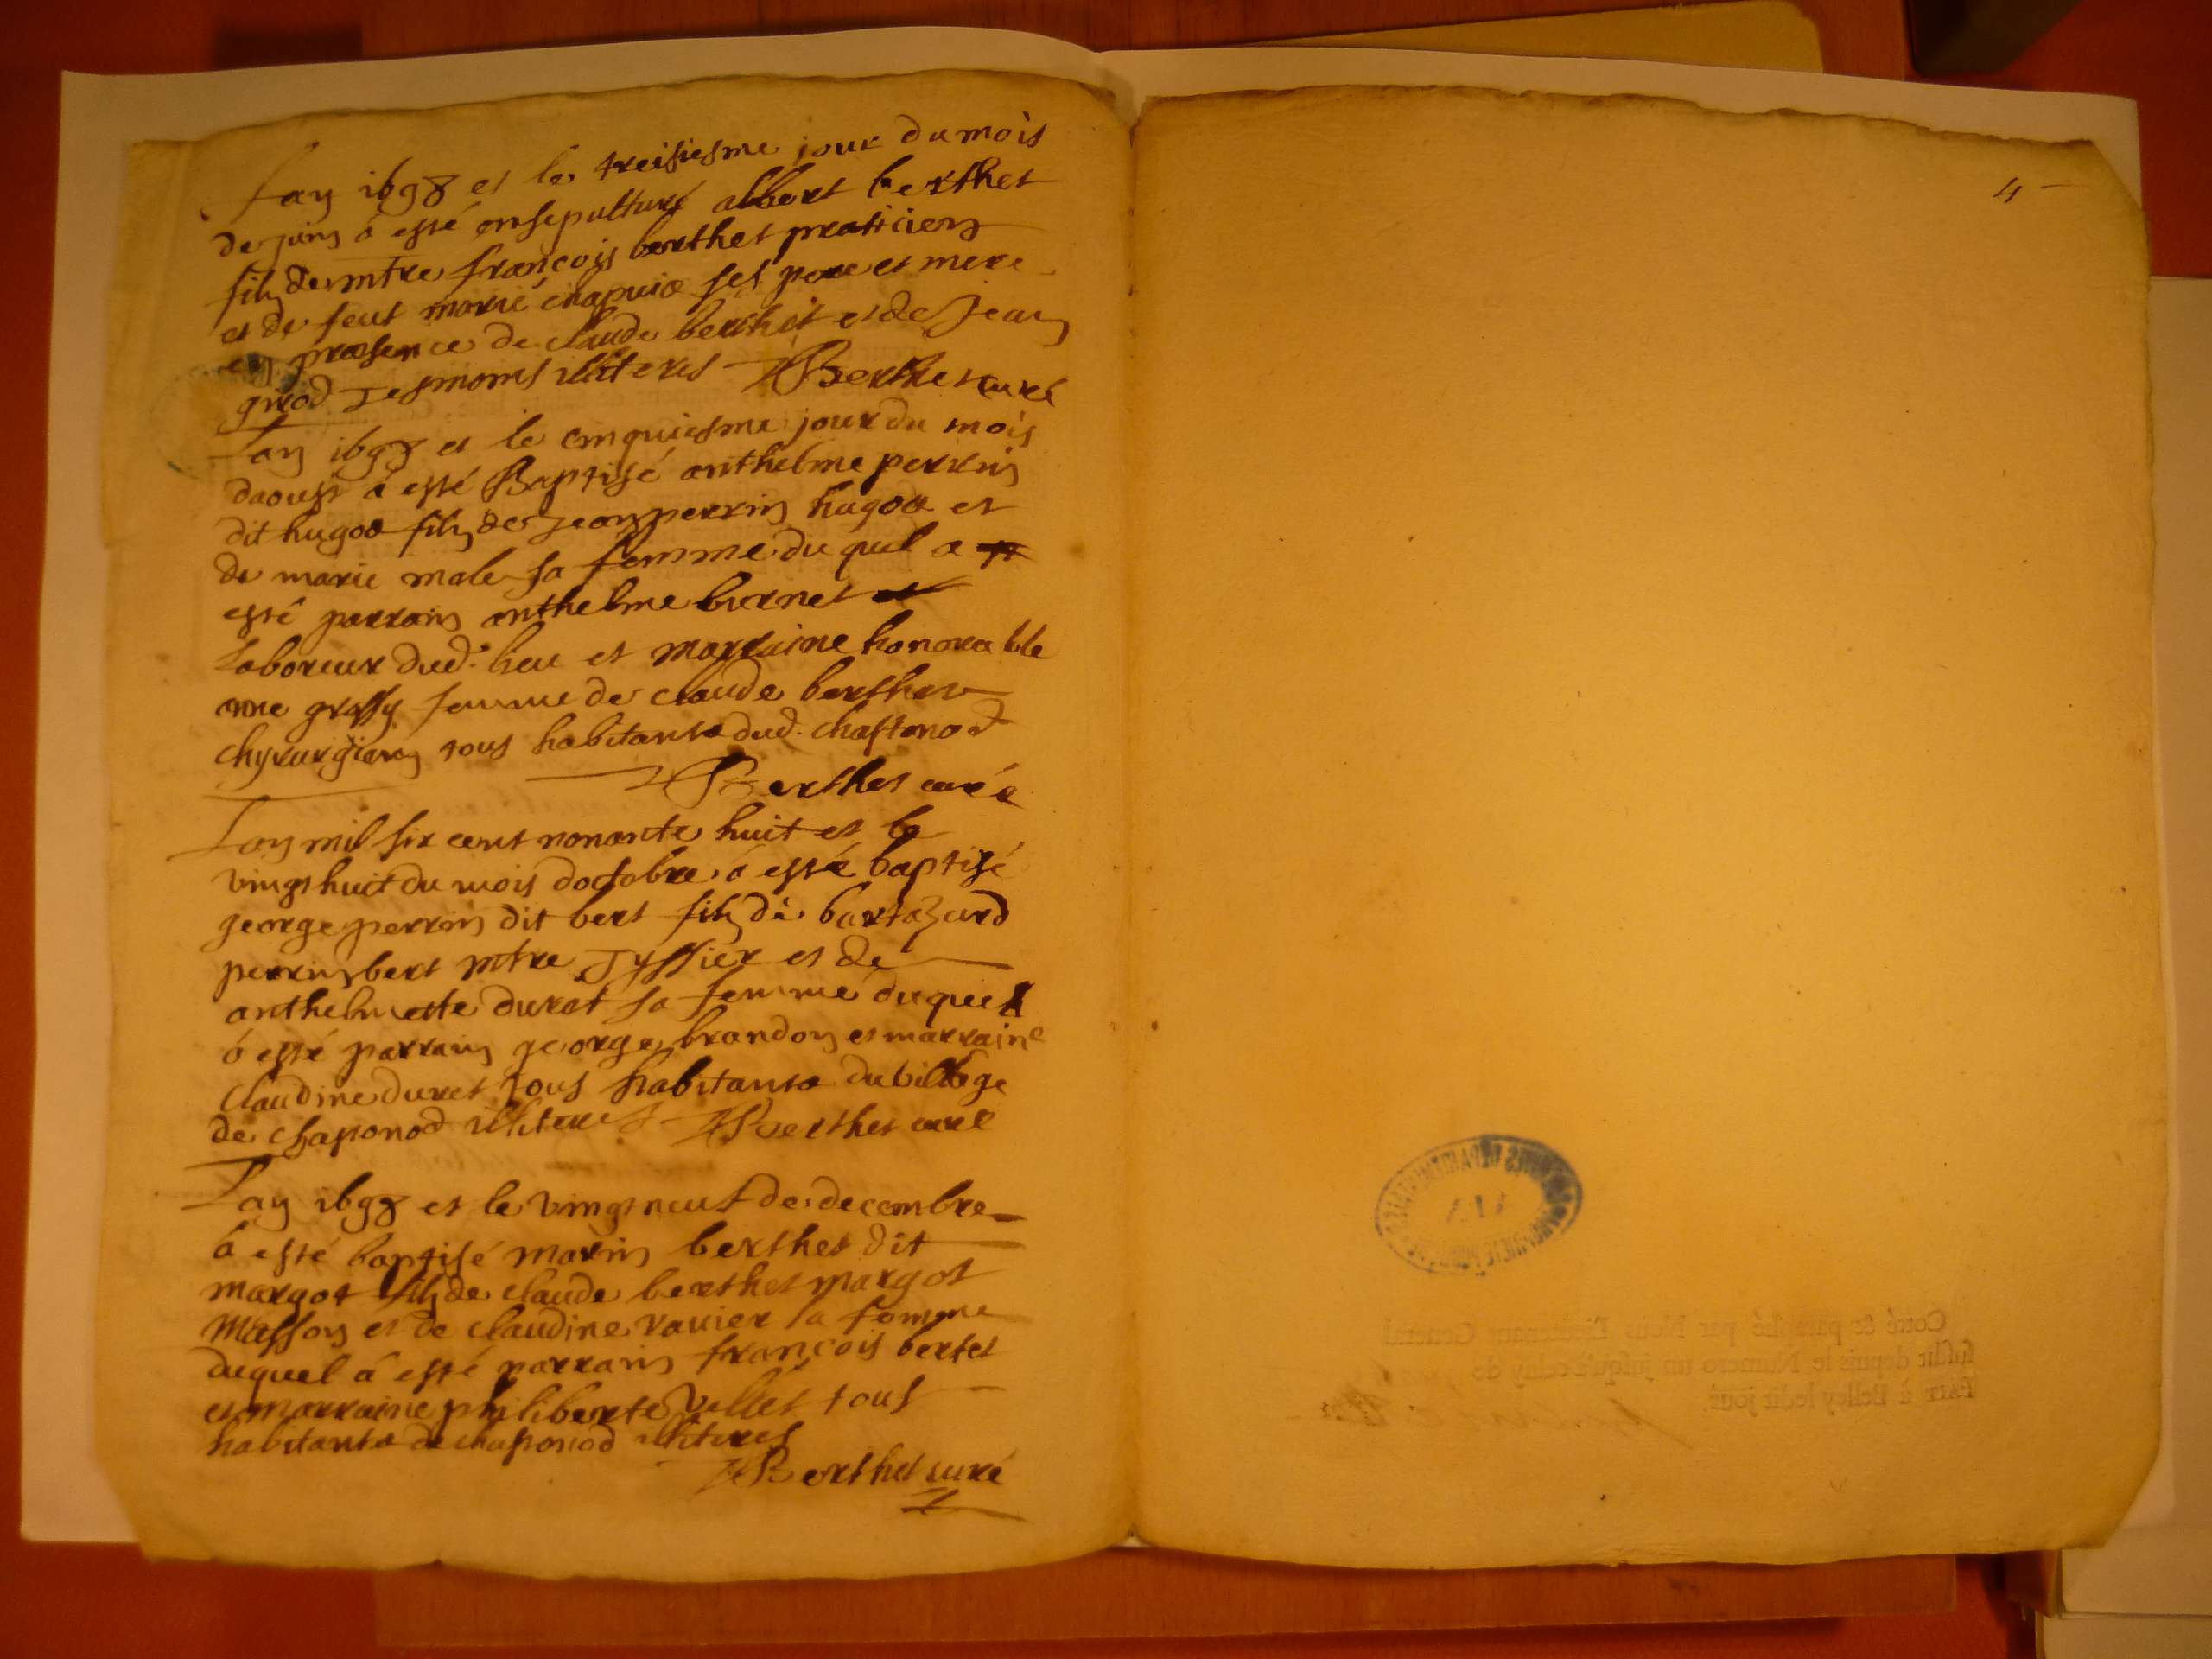 Lan 1698 et le treisiesme jour du mois
de juin á esté ensepulturé albert berthet
filz de mtre françois berthet praticien
et de feut marie chapuis ses pere et mere
en præsence de claude berthet et de Jean
girod Tesmoins illiteres Berthet curé
Lan 1698 et le cinquiesme jour du mois
daoust á esté Baptisé anthelme perrin
dit hugoz filz de Jean perrin hugoz et
de marie male sa femme du quel a
esté parrain anthelme burnet
Laboreur dud. lieu et marraine honorable
anne grassy femme de claude berthet
chyrurgien tous habitants dud. chastonod
Berthet curé
Lan mil six cent nonante huit et le
vingt huit du mois doctobre á esté baptisé
george perrin dit bert filz de
perrin bert mtre Tyssier et de
anthelmette duret sa femme duquel
á esté parrain george brandon et marraine
Claudine duret tous habitants du village
de chaponod illiteres Berthet curé
Lan 1698 et le vingt neuf de decembre
á esté baptisé marin berthet dit
margot filz de claude berthet margot
Masson et de claudine ravier sa femme
duquel á esté parrain françois bertet
et marraine philiberte Vallet tous
habitants de chaponod illiteres
Berthet curé
4
Cotté & paraphé par Nous Lieutenant General
sussdit depuis le Numero un jusqu'à celuy de
FAIT à Belley ledit jour.